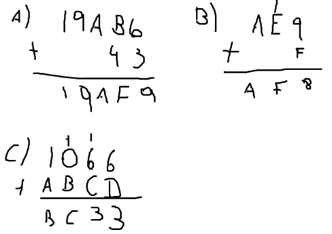 A) 19AB6
+ 43
19AF9
B) 1
AE9
+ F
AF8
C) 1 1
1066
+ ABCD
BC33